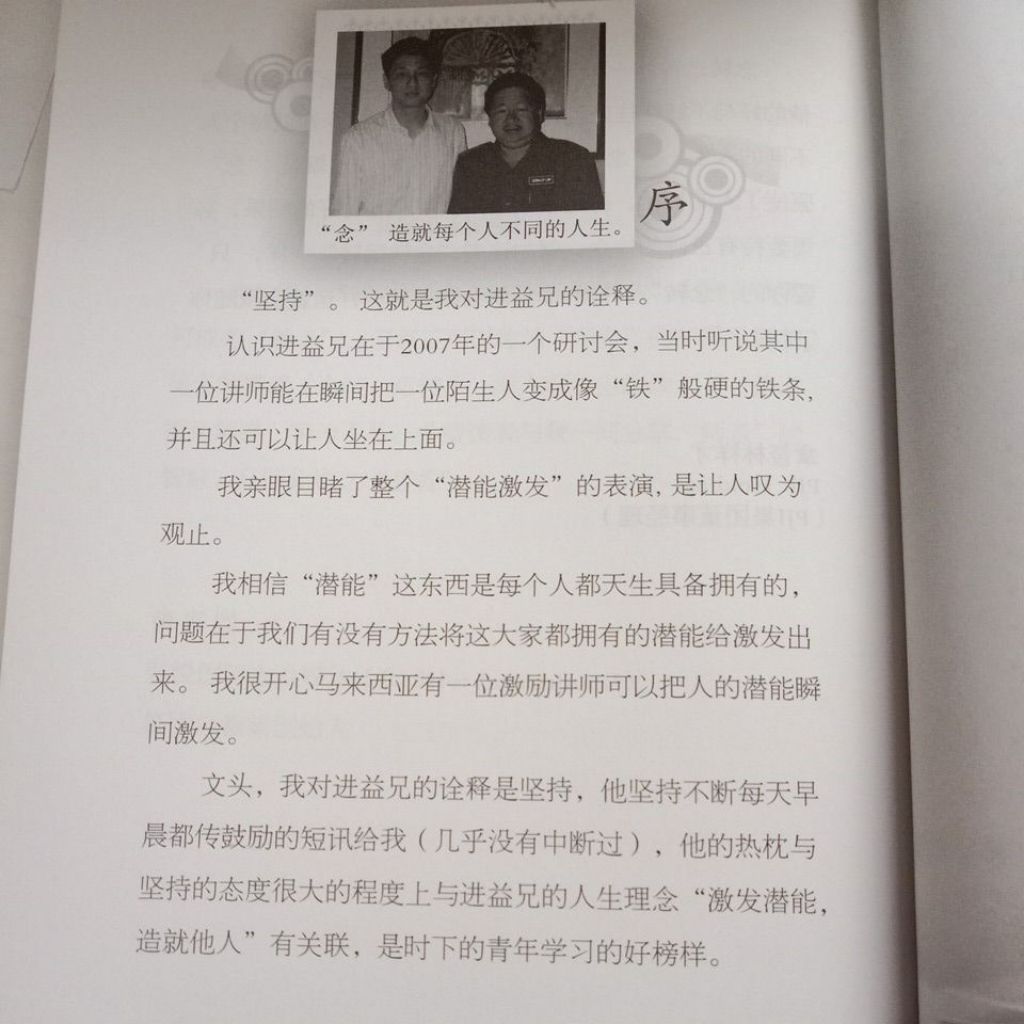 “念” 造就每个人不同的人生。
序
“坚持”。 这就是我对进益兄的诠释。
认识进益兄在于2007年的一个研讨会，当时听说其中
一位讲师能在瞬间把一位陌生人变成像“铁”般硬的铁条,
并且还可以让人坐在上面。
我亲眼目睹了整个“潜能激发”的表演, 是让人叹为
观止。
我相信“潜能”这东西是每个人都天生具备拥有的，
问题在于我们有没有方法将这大家都拥有的潜能给激发出
来。 我很开心马来西亚有一位激励讲师可以把人的潜能瞬
间激发。
文头，我对进益兄的诠释是坚持，他坚持不断每天早
晨都传鼓励的短讯给我（几乎没有中断过），他的热枕与
坚持的态度很大的程度上与进益兄的人生理念“激发潜能，
造就他人”有关联，是时下的青年学习的好榜样。